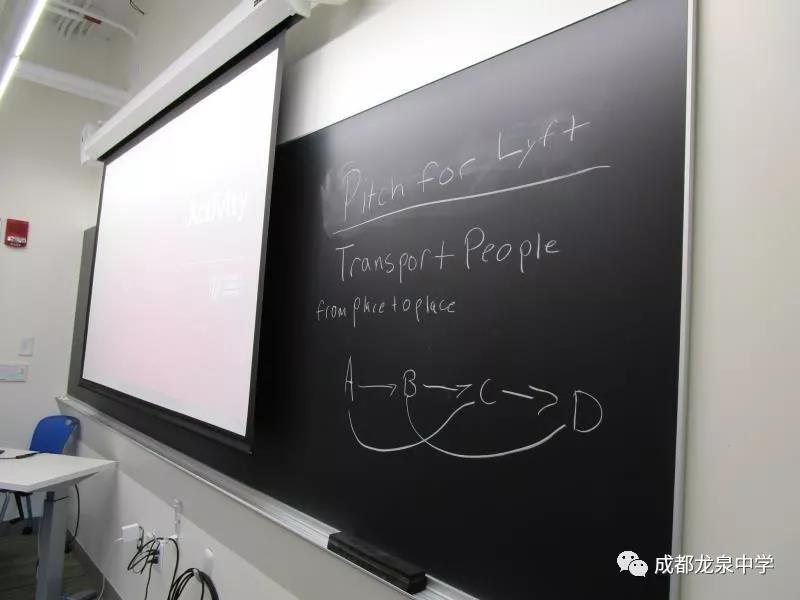 Activity
Pitch for Lyft
Transport People
from place to place
A → B → C → D
成都龙泉中学